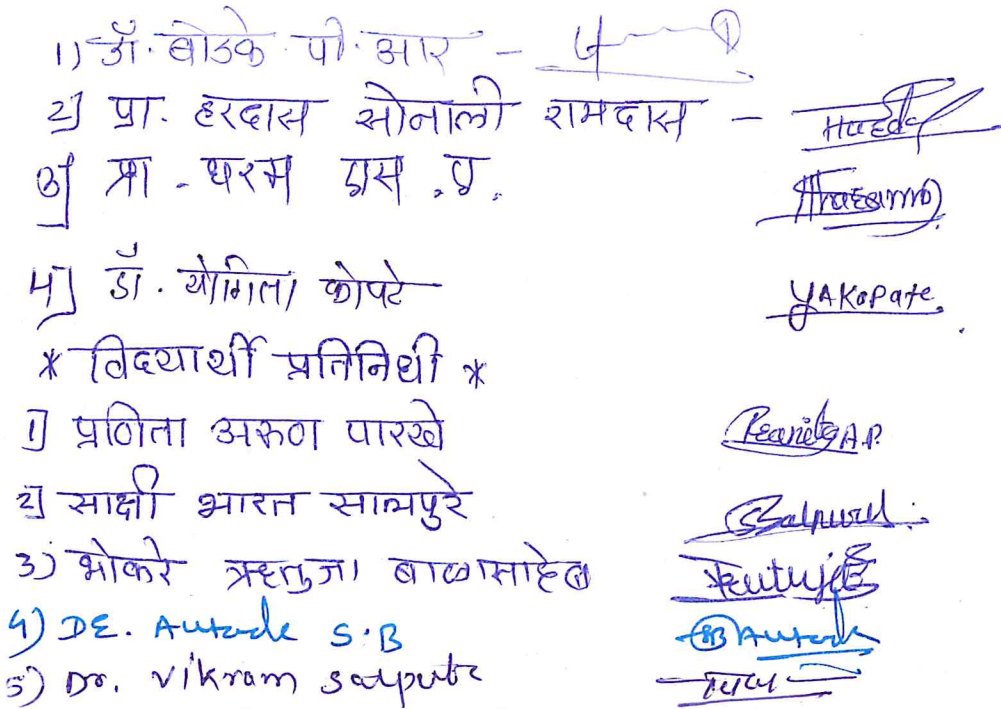 1) डॉ. बोडके पी. आर -
2] प्रा. हरदास सोनाली रामदास -
3] प्रा. धरम एस. ए.
4] डॉ. योगिता कोपटे YAKopate.
* विदयार्थी प्रतिनिधी *
1] प्रणिता अरुण पारखे Pranita A.P.
2] साक्षी भारत सातपुरे
3) भोकरे ऋतुजा बाळासाहेब
4) DR. Autade S.B SB Autade
5) Dr. Vikram Satpute